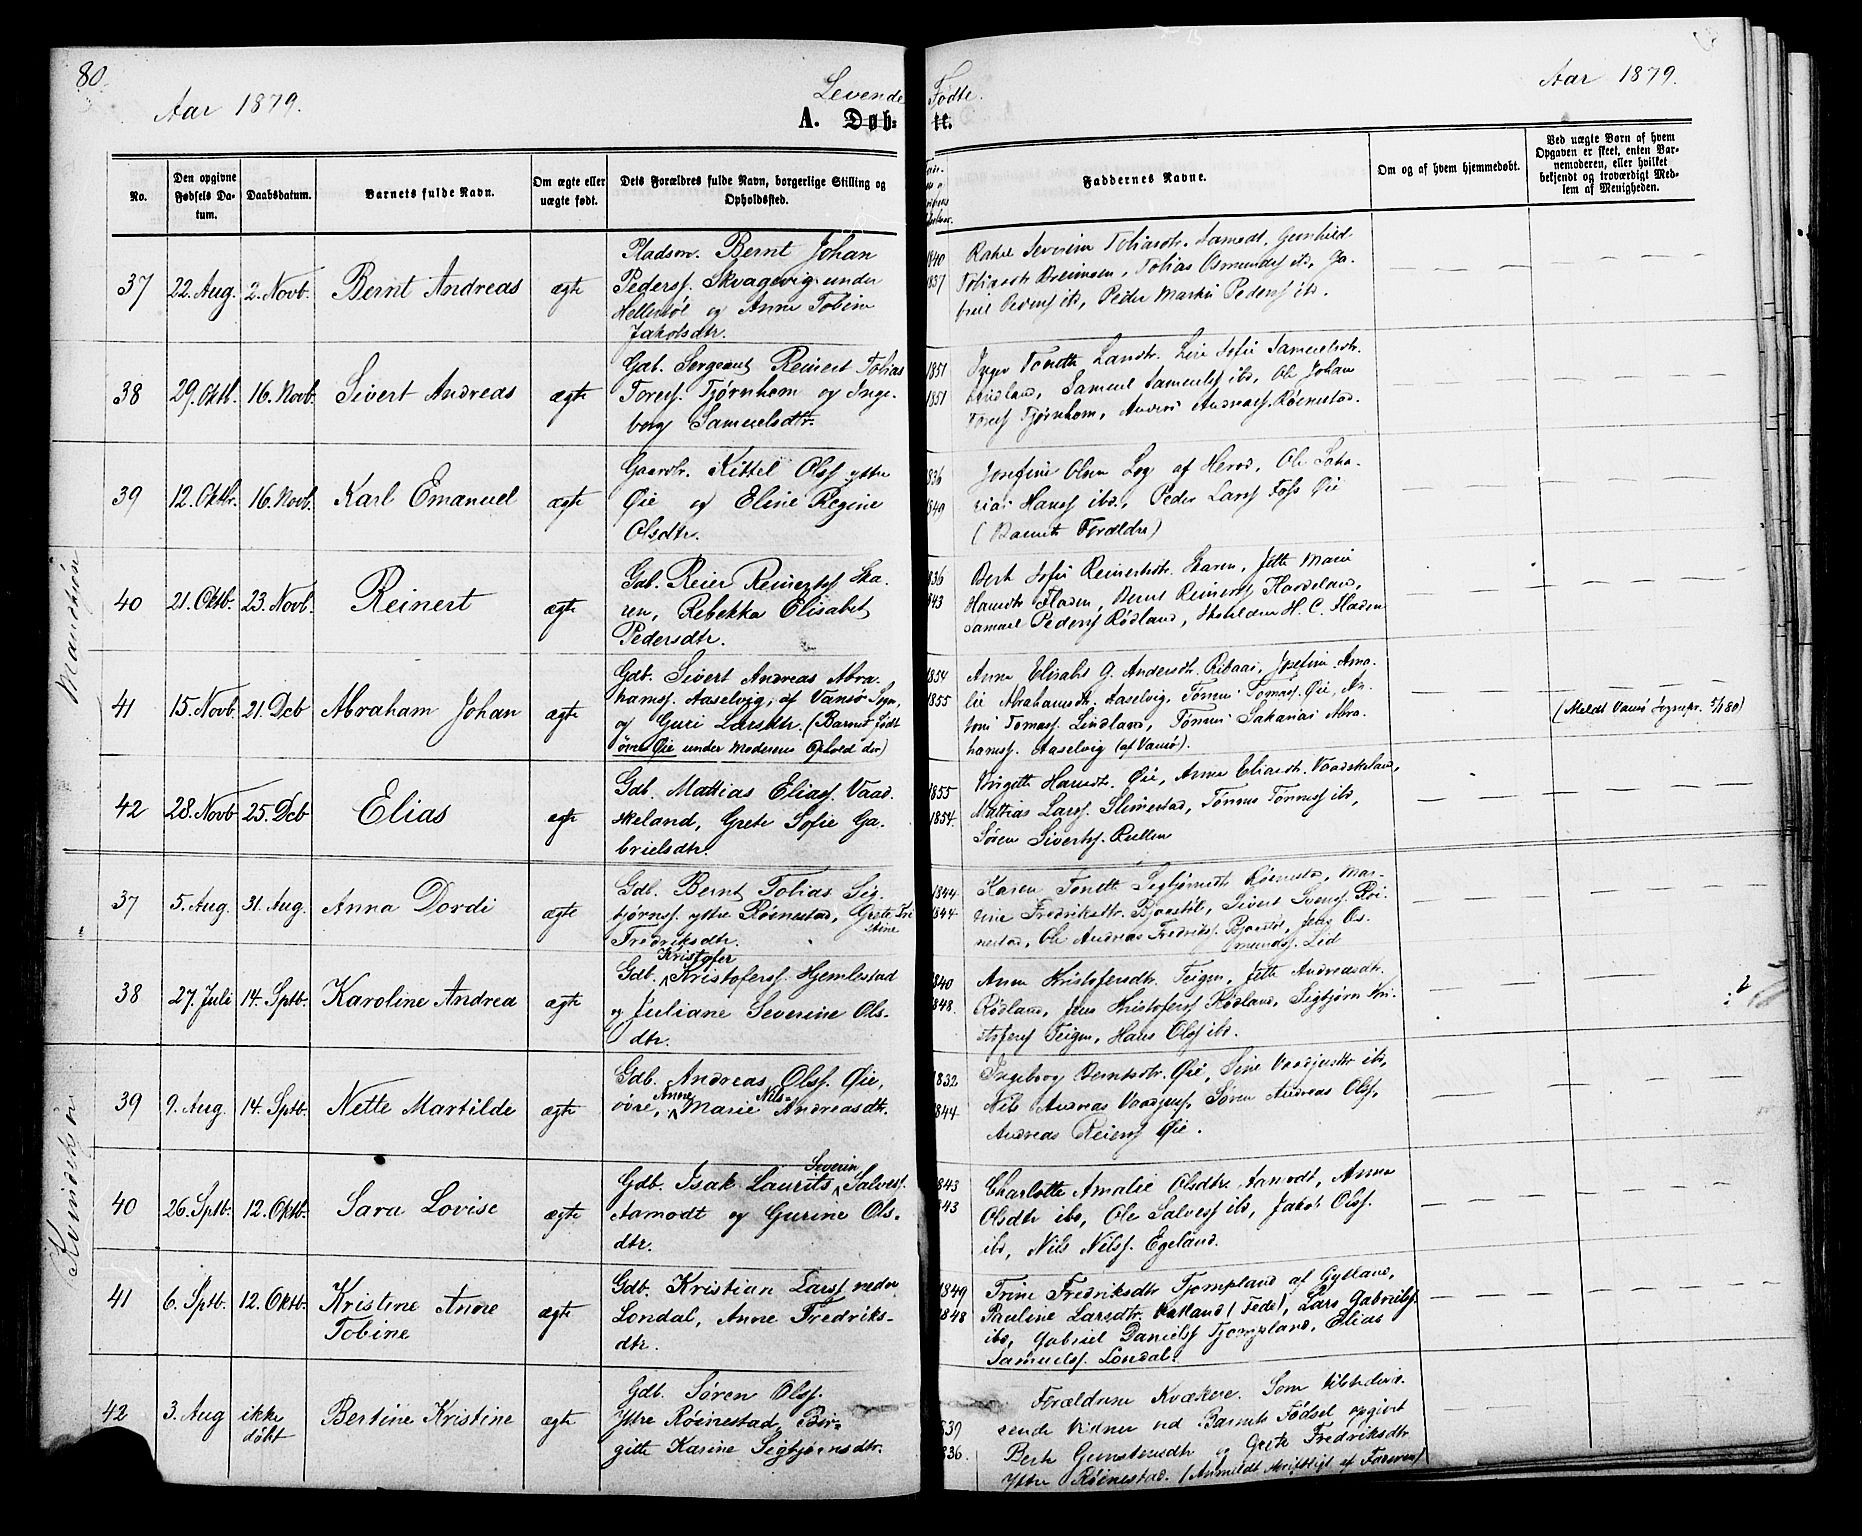 80.
Aar 1879.
Levende Fødte.
Aar 1879.
A. Døbte.
No.
Den opgivne Fødsels Datum.
Daabsdatum.
Barnets fulde Navn.
Om ægte eller uægte født.
Dets Forældres fulde Navn, borgerlige Stilling og Opholdssted.
Faddernes Navne.
Om og af hvem hjemmedøbt.
Ved uægte Børn af hvem Opgaven er skeet, enten Barnemoderen, eller hvilket bekjendt og troværdigt Medlem af Menigheden.
Mandkjøn
37 22. Aug. 2. Novb. Bernt Andreas ægte
Pladsm. Bernt Johan
Pederss. Skvagevig under
Hellestøl og Anne Tobine
Jakobsdtr.
1840
1837
Rakel Severine Tobiasdtr. Aamodt, Gunhild
Tobiasdtr Breimoen, Tobias Osmundss ibd, Ga-
briel Pederss ibd, Peder Martin Pederss ibd.
38 29. Oktb. 16. Novb. Sivert Andreas ægte
Gdb. Sergeant Reinert Tobias
Toress. Tjørnhom og Inge-
borg Samuelsdtr.
1851
1851
Inger Tonette Larsdtr. Line Sofie Samuelsdtr.
Lindland, Samuel Samuelss ibd, Ole Johan
Toress Tjørnhom, Andreas Røinestad.
39 12. Oktbr. 16. Novb. Karl Emanuel ægte
Gaardbr. Kittel Olss ytre
Øie og Eline Regine
Olsdtr.
1836
1849
Josefine Olsen Log af Herad, Ole Saka-
rias Hanss ibd., Peder Larss Foss Øie
(Barnets Forældre)
40 21. Oktb. 23. Novb. Reinert ægte
Gdb. Reier Reinertss Ska-
ren, Rebekka Elisabet
Pedersdtr.
1836
1843
Bert Sofie Reinertsdtr. Skaren, Jette Marie
Hansdtr Fladen, Bernt Reinertss Haddeland,
Samuel Pederss Rødland, Skoleholder H. C. Fladen
41 15. Novb 21. Dcb Abraham Johan ægte
Gdb. Sivert Andreas Abra-
hamss. Aaselvig, af Vansø Sogn,
og Guri Larsdtr. (Barnet født
øvre Øie under Moderens Ophold der)
1854
1855
Anne Elisabt G. Andersdtr. Ribaas, Josefine Ama-
lie Abrahamsdtr. Aaselvig, Tønnes Tomass. Øie, An-
toni Tomass. Lindland, Tønnes Sakarias Abra-
hamss. Aaselvig (af Vansø).
(Meldt Vansø Sognepr.
42 28. Novb 25. Dcb Elias ægte
Gdb. Mathias Eliass. Vaad-
skeland, Grete Sofie Ga-
brielsdtr.
1855
1854.
Birgitte Hansdtr. Øie, Anna Eliasdtr. Vaadskeland,
Mathias Larss. Slimestad, Tønnes Tønness ibd,
Søren Sivertss. Rullen
Kvindekjøn
37 5. Aug. 31. Aug. Anna Dordi ægte
Gdb. Bernt Tobias Sig-
bjørnss. ytre Røinestad, Grete Tri-
stine
Fredriksdtr.
1844
1844
Karen Tonette Sigbjørnsdtr Røinestad, Mar-
tine Fredriksdtr. Bjaastøl, Sivert Svenss. Røi-
nestad, Ole Andreas Fredrikss. Bjaastøl, Jens Os-
mundss. Lid
38 27. Juli 14. Sptb. Karoline Andrea ægte
Kristofer
Gdb. Kristoferss. Hjemlestad
og Juliane Severine Ols-
dtr.
1840
1848.
Anne Kristofersdtr. Teigen, Jette Andreasdtr.
Rødland, Jens Kristoferss Rødland, Sigbjørn Kri-
stoferss Teigen, Hans Olss ibd.
39 9. Aug. 14. Sptb. Nette Martilde ægte
Gdb. Andreas Olss. Øie,
Anne Nils-
øvre, Marie Andreasdtr.
1832
1844
Ingeborg Berntsdtr. Øie, Sine Vaadjersdtr ibd,
Nils Andreas Vaadjerss, Søren Andreas Olss,
Andreas Reierss Øie.
40 26. Sptb. 12. Oktb. Sara Lovise ægte
Severin
Gdb. Isak Laurits Salvess.
Aamodt og Gurine Ols-
dtr.
1843
1843
Charlotte Amalie Olsdtr. Aamodt, Anna
Olsdtr ibd, Ole Salvess ibd, Jakob Olss.
ibd, Nils Nilss. Egeland.
41 6. Sptb. 12. Oktb. Kristine Anne Tobine ægte
Gdb. Kristian Larss nedre
Londal, Anne Fredriks-
dtr.
1849
1848
Trine Fredriksdtr Tjomsland af Gylland,
Pauline Larsdtr. Netland (Fede), Lars Gabrielss.
ibd, Gabriel Danielss Tjomsland, Elias
Samuelss. Londal.
42 3. Aug ikke døbt Bertine Kristine ægte
Gdb. Søren Olss.
Ytre Røinestad, Bir-
gitte Karine Sigbjørnsdtr.
1839
1836.
Forældrene Kvækere. Som tilstedevæ-
rende Vidner ved Barnets Fødsel opgivet
Bert Gunstensdtr og Grete Fredriksdtr
Ytre Røinestad. (Anmeldt skriftligt af Faderen)